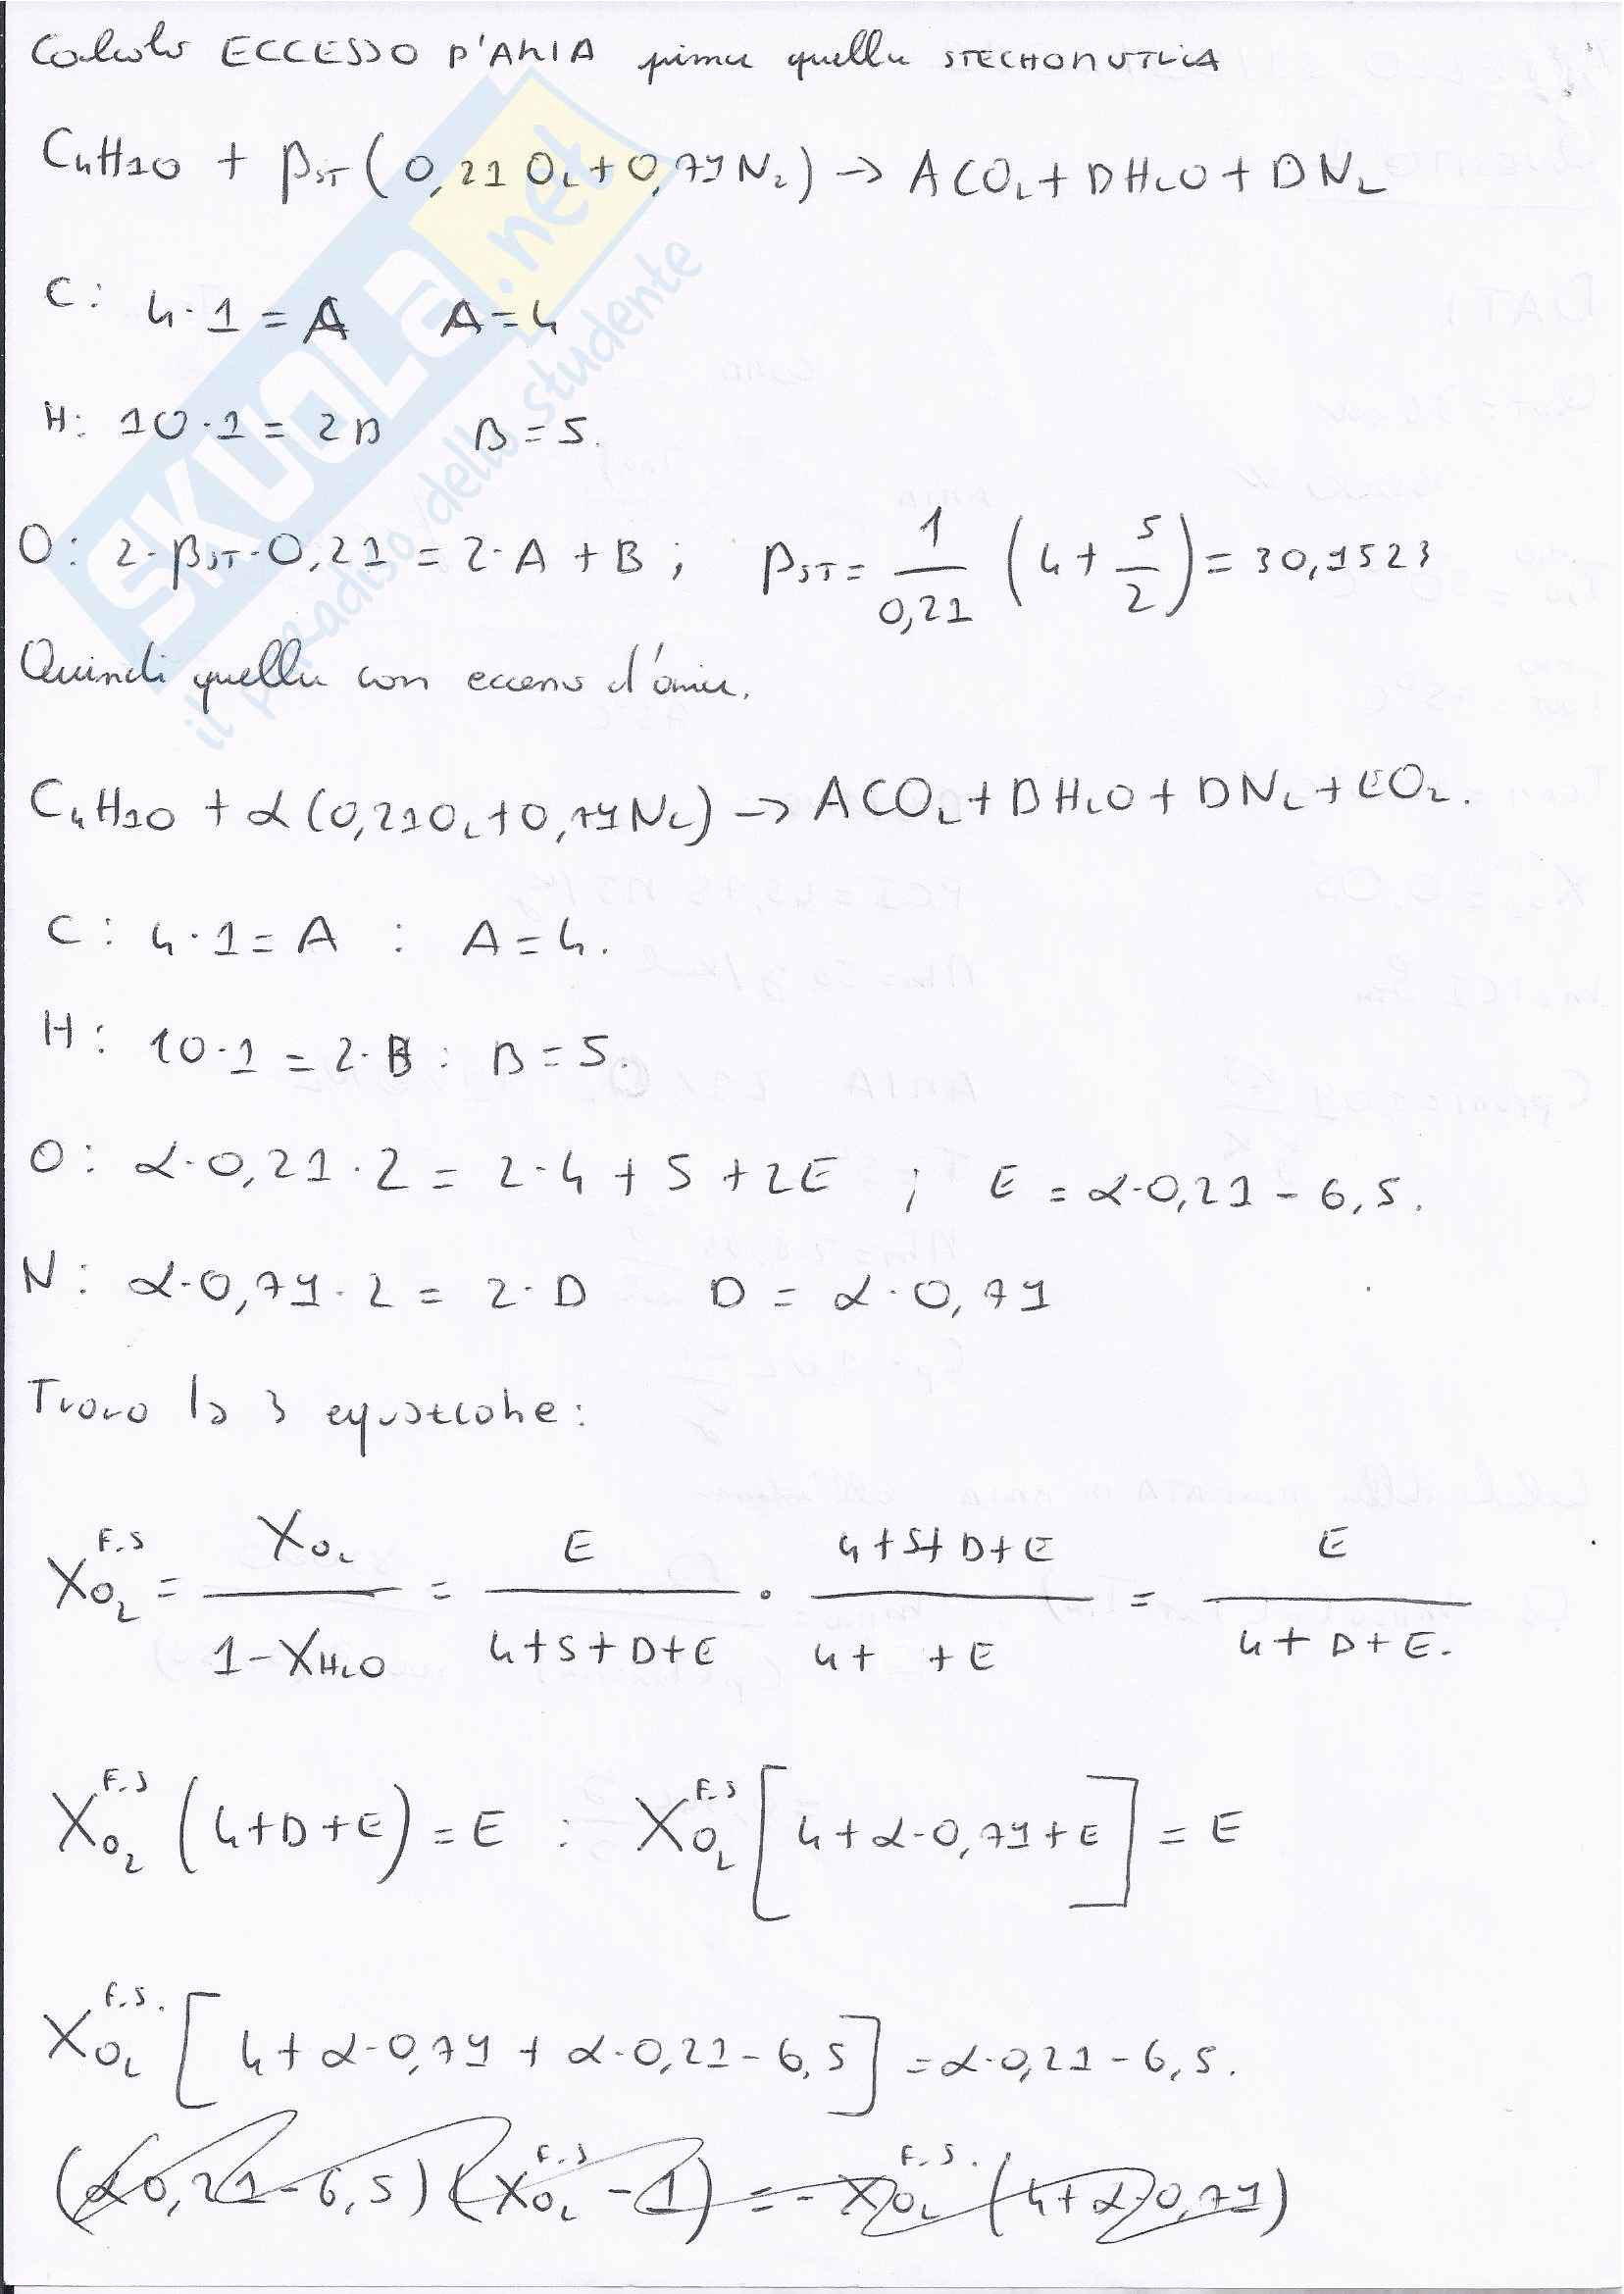 Calcolo ECCESSO D'ARIA prima quella STECHIOMETRICA
C4H10 + βST (0,21 O2 + 0,79 N2) → A CO2 + B H2O + D N2
C: 4·1 = A A = 4
H: 10·1 = 2B B = 5.
O: 2·βST·0,21 = 2·A + B ; βST = 1/0,21 (4 + 5/2) = 30,9523
Quindi quella con eccesso d'aria.
C4H10 + α (0,21 O2 + 0,79 N2) → A CO2 + B H2O + D N2 + E O2.
C: 4·1 = A : A = 4.
H: 10·1 = 2·B : B = 5.
O: α·0,21·2 = 2·4 + 5 + 2E ; E = α·0,21 - 6,5.
N: α·0,79·2 = 2·D D = α·0,79
Trovo la 3 equazione:
XO2^F.S = XO2 / (1 - XH2O) = E / (4+5+D+E) · (4+5+D+E) / (4+ +E) = E / (4+D+E).
XO2^F.S (4+D+E) = E : XO2^F.S [4+α·0,79+E] = E
XO2^F.S. [4+α·0,79 + α·0,21 - 6,5] = α·0,21 - 6,5.
(α0,21 - 6,5) (XO2^F.S - 1) = - XO2^F.S. (4+α·0,79)
SKUOLA.net
il paradiso dello studente